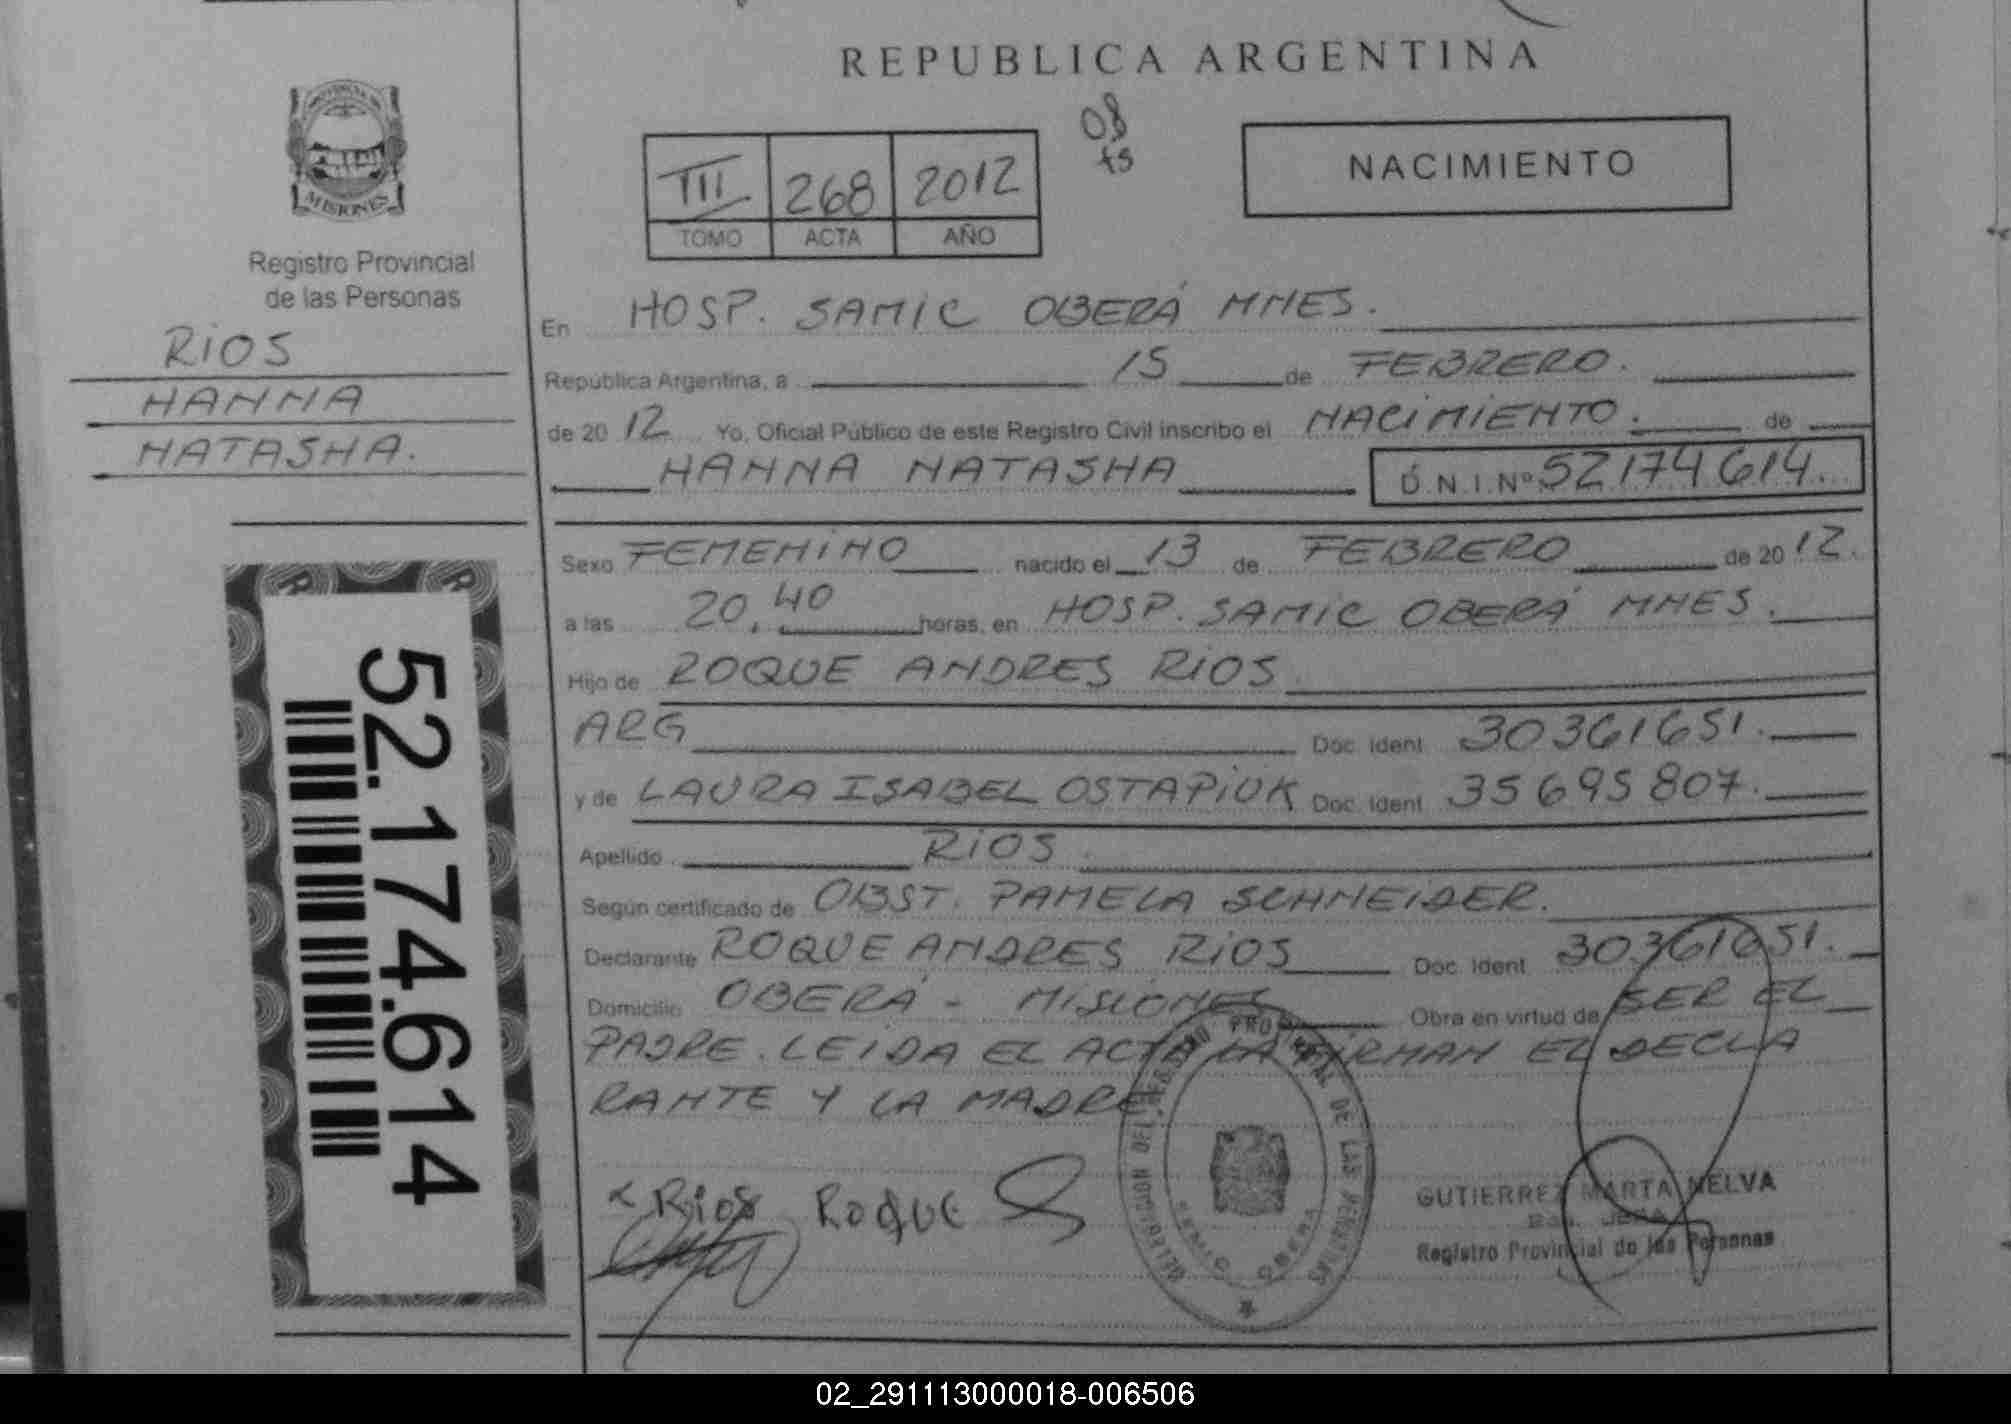 REPUBLICA ARGENTINA
PROVINCIA DE
MISIONES
Registro Provincial
de las Personas
RIOS
HANNA
NATASHA.
III 268 2012
TOMO ACTA AÑO
08
ts
NACIMIENTO
En HOSP. SAMIC OBERÁ MNES.
República Argentina, a 15 de FEBRERO.
de 20 12 Yo, Oficial Público de este Registro Civil inscribo el NACIMIENTO. de
HANNA NATASHA D.N.I. Nº 52174614.
Sexo FEMENINO nacido el 13 de FEBRERO de 20 12.
a las 20,40 horas, en HOSP. SAMIC OBERÁ MNES.
Hijo de ROQUE ANDRES RIOS
ARG Doc. Ident 30361651.
y de LAURA ISABEL OSTAPIUK Doc. Ident 35695807.
Apellido RIOS.
Según certificado de OBST. PAMELA SCHNEIDER.
Declarante ROQUE ANDRES RIOS Doc. Ident 30361651.
Domicilio OBERÁ - MISIONES Obra en virtud de SER EL
PADRE. LEIDA EL ACTA LA FIRMAN EL DECLA
RANTE Y LA MADRE
52.174.614
Rios ROQUE
DELEGACION DEL REGISTRO PROVINCIAL DE LAS PERSONAS
OBERA
GUTIERREZ MARTA NELVA
Registro Provincial de las Personas
02_291113000018-006506